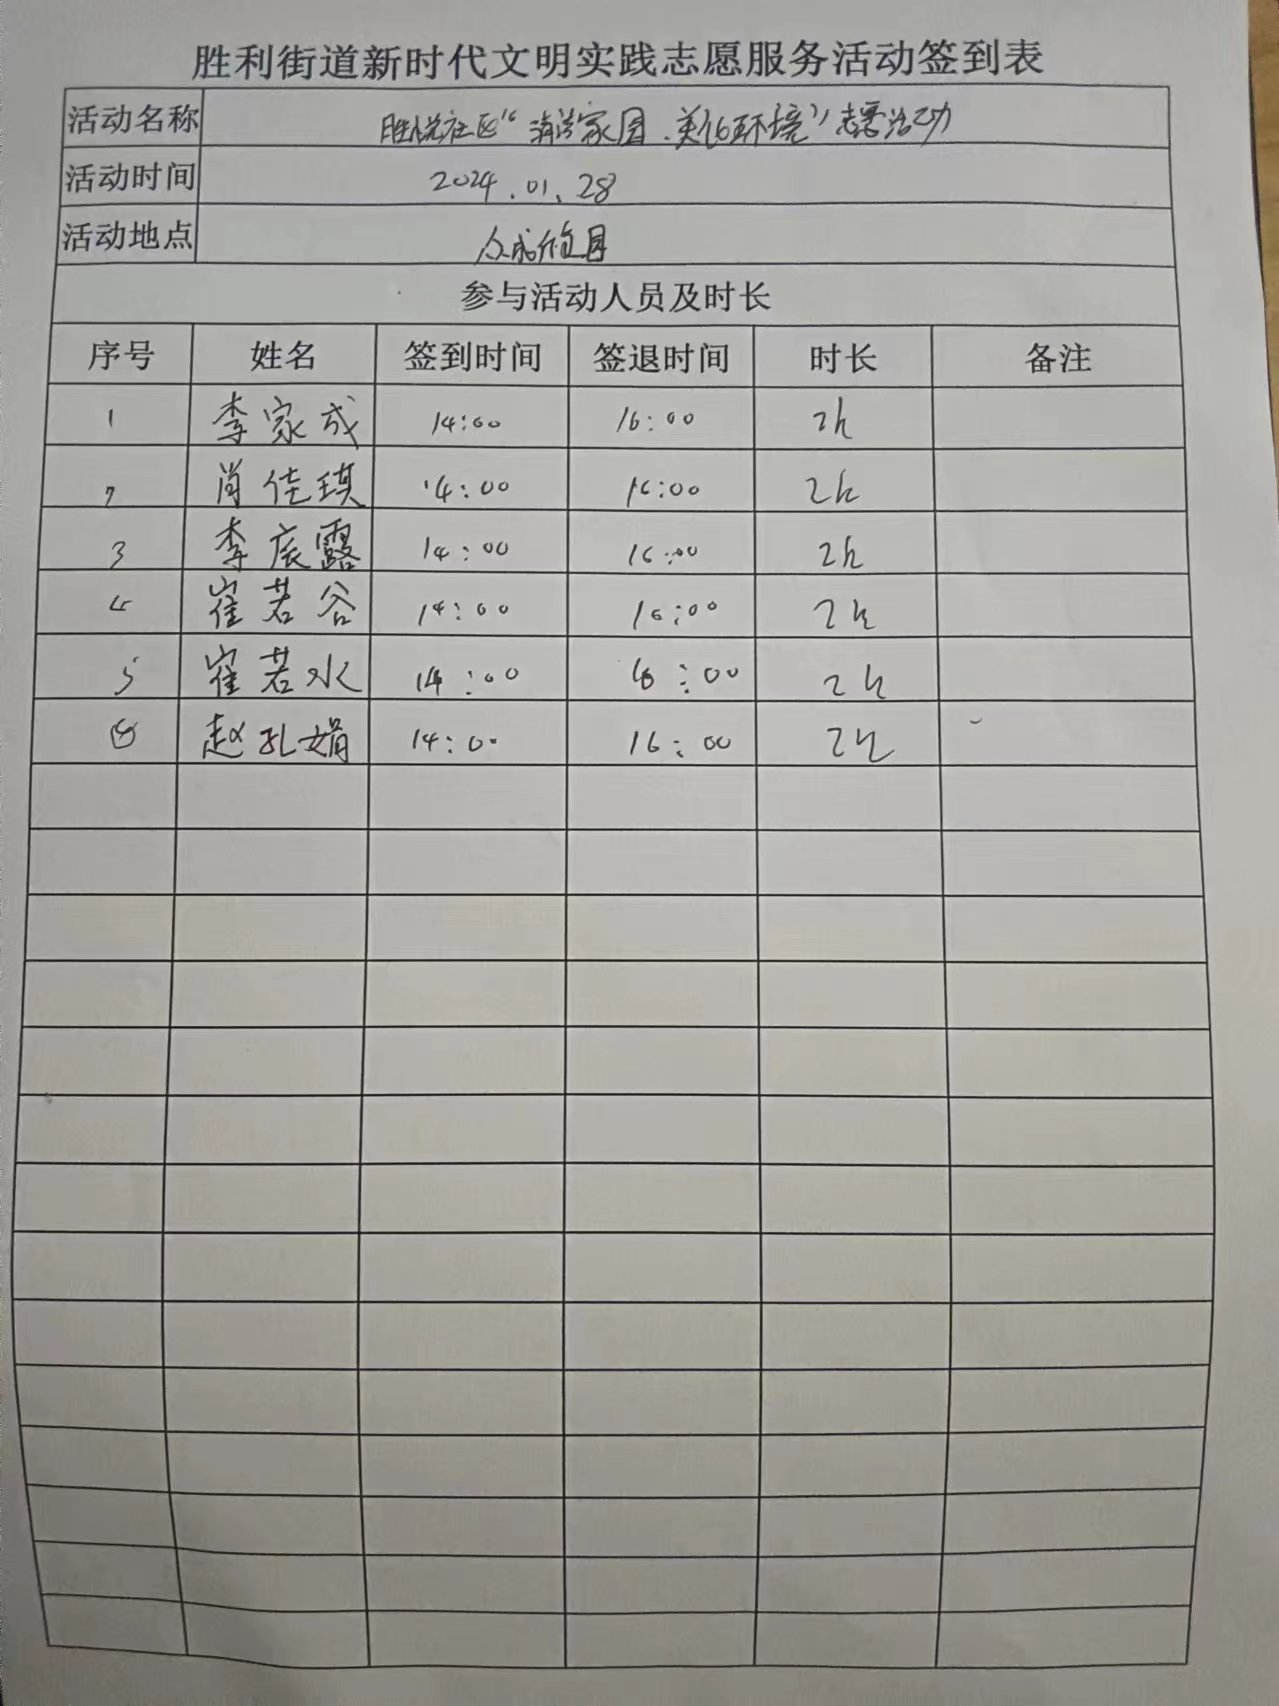 胜利街道新时代文明实践志愿服务活动签到表
活动名称 胜悦社区“清洁家园、美化环境”志愿活动
活动时间 2024.01.28
活动地点 众成欣园
参与活动人员及时长
序号 姓名 签到时间 签退时间 时长 备注
1 李家成 14:00 16:00 2h
2 肖佳琪 14:00 16:00 2h
3 李辰露 14:00 16:00 2h
4 崔若谷 14:00 16:00 2h
5 崔若水 14:00 16:00 2h
6 赵孔娟 14:00 16:00 2h